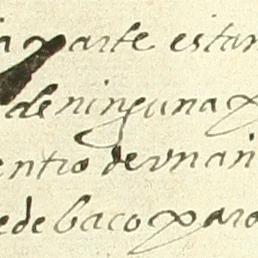 a parte estan
de ninguna p
entro de vn añ
ede baco para